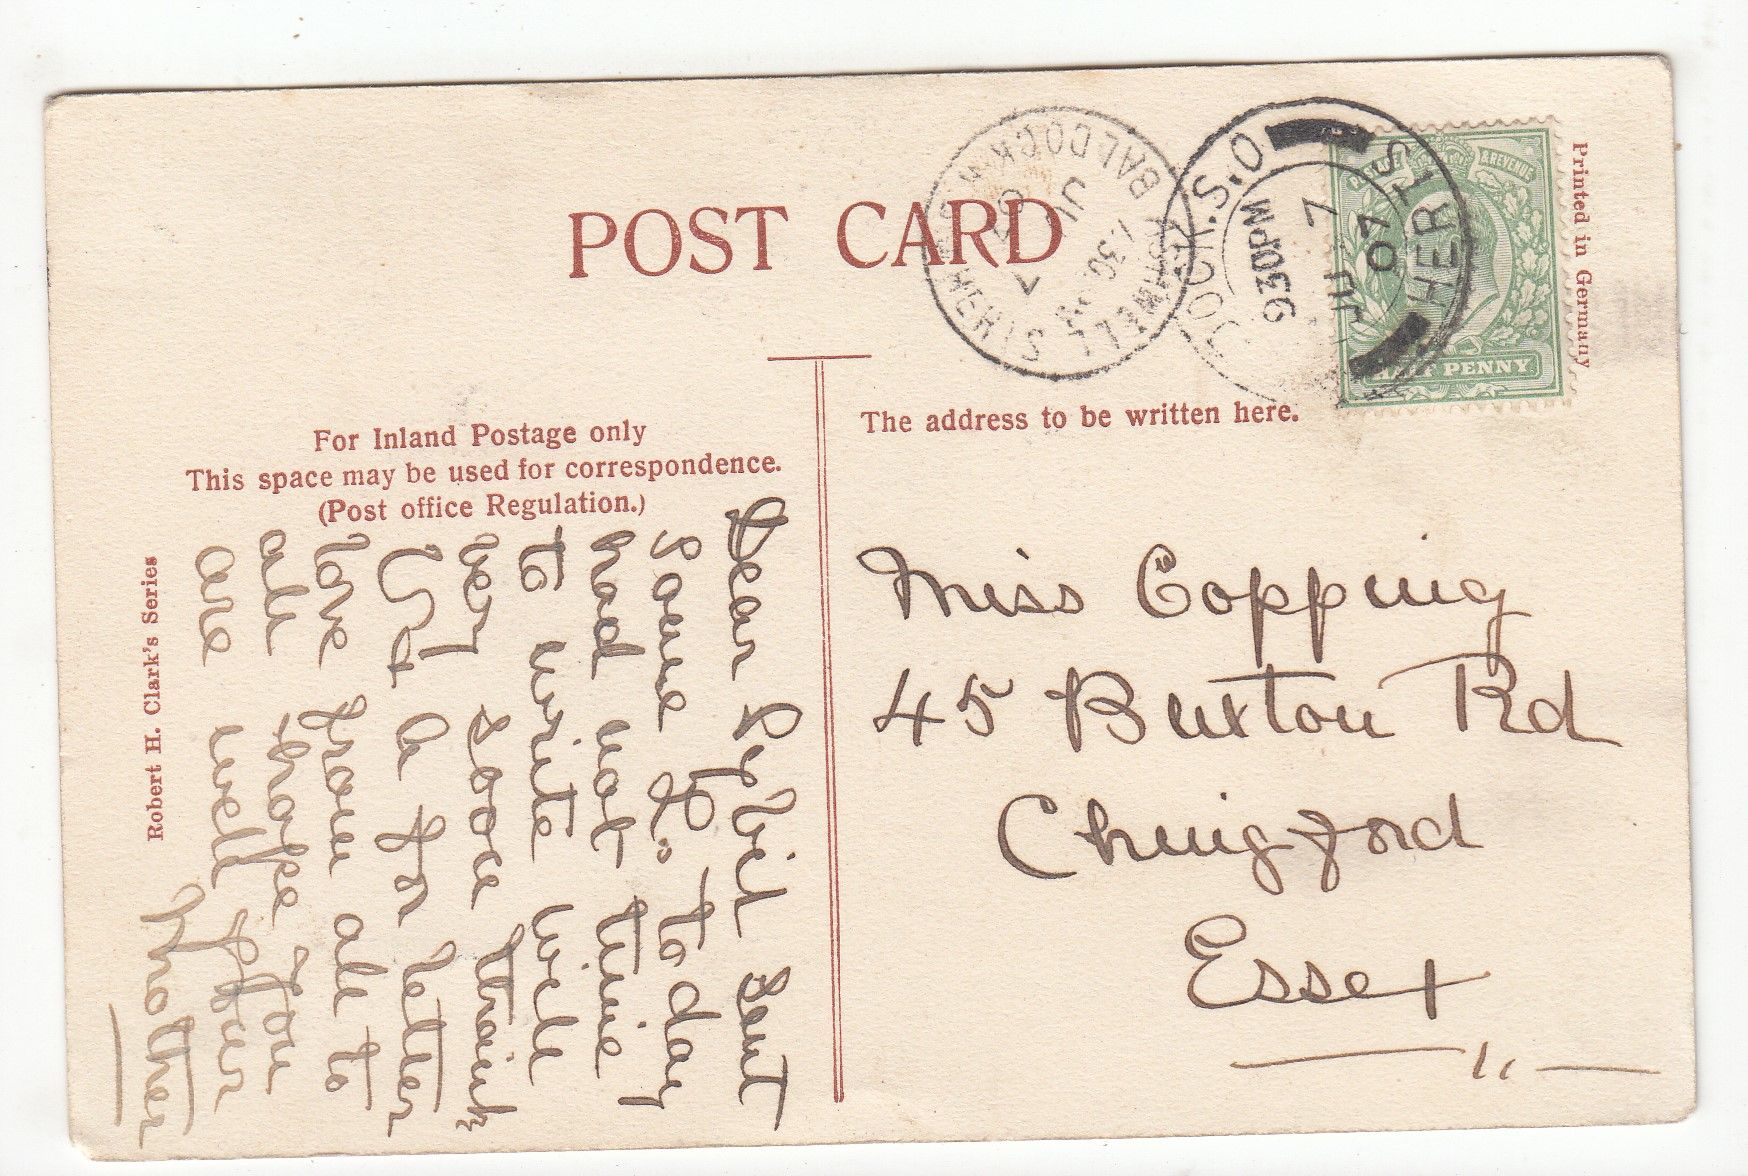 POST CARD
BALDOCK
JU 7
07
930PM
JU 7
07
HERTS
HALF PENNY
Printed in Germany
For Inland Postage only
This space may be used for correspondence.
(Post office Regulation.)
The address to be written here.
Robert H. Clark's Series
Dear Sent
Some to day
had not time
to write will
very soon thank
for letter
love from all to
all hope You
are well Your
Mother
Miss Copping
45 Buxton Rd
Chingford
Essex